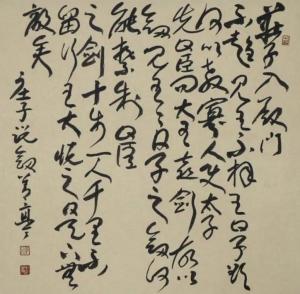 莊子入殿門
不趨見王不拜王曰子欲
何以教寡人使太子
先臣聞大王喜劍故以
劍見王王曰子之劍何
能禁制臣
之劍十步一人千里不
留行王大悅之曰天下無
敵矣
庄子说劍